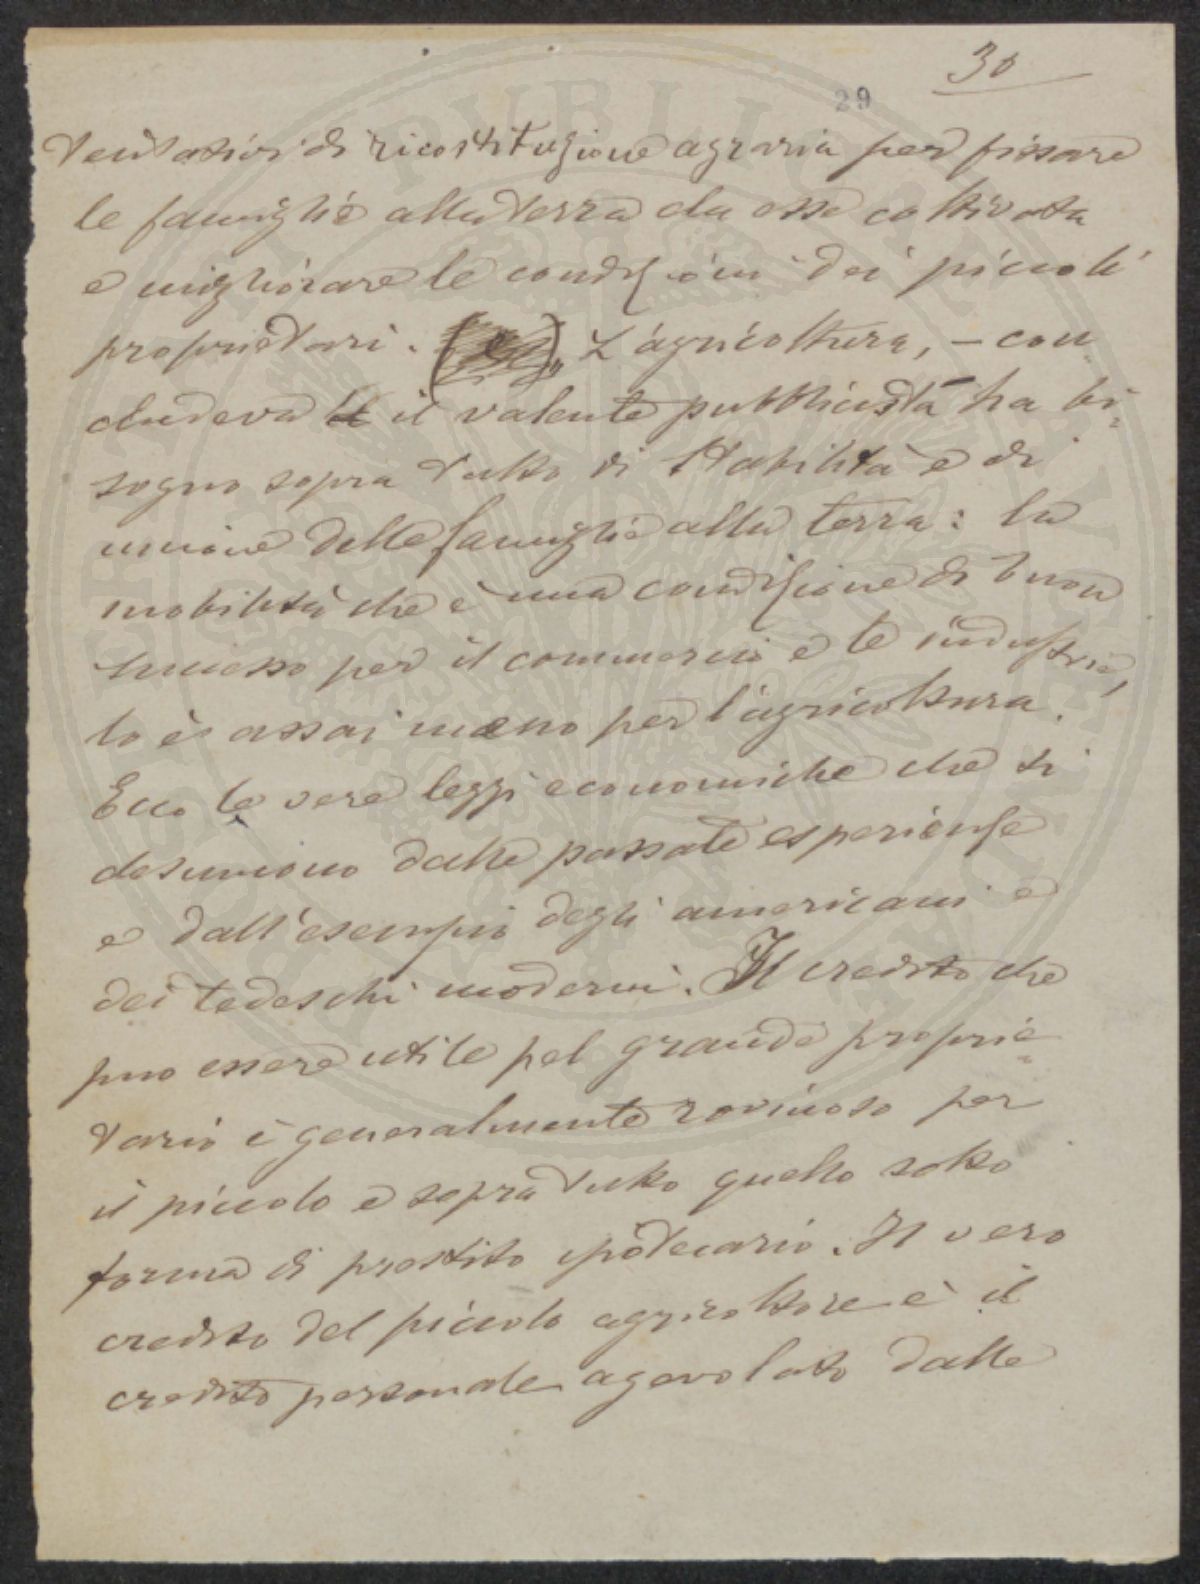 30
29
tentativi di ricostituzione agraria per fissare
le famiglie alla terra da esse coltivata
e migliorare le condizioni dei piccoli
proprietari. L'agricoltura, – con
cludeva il valente pubblicista – ha bi=
sogno sopra tutto di stabilità e di
unione delle famiglie alla terra: la
mobilità che è una condizione di buon
successo per il commercio e le industrie,
lo è assai meno per l'agricoltura.
Ecco le vere leggi economiche che si
desumono dalle passate esperienze
e dall'esempio degli americani e
dei tedeschi moderni. Il credito che
puo essere utile pel grande proprie=
tario è generalmente rovinoso per
il piccolo e sopra tutto quello sotto
forma di prestito ipotecario. Il vero
credito del piccolo agricoltore è il
credito personale agevolato dalle